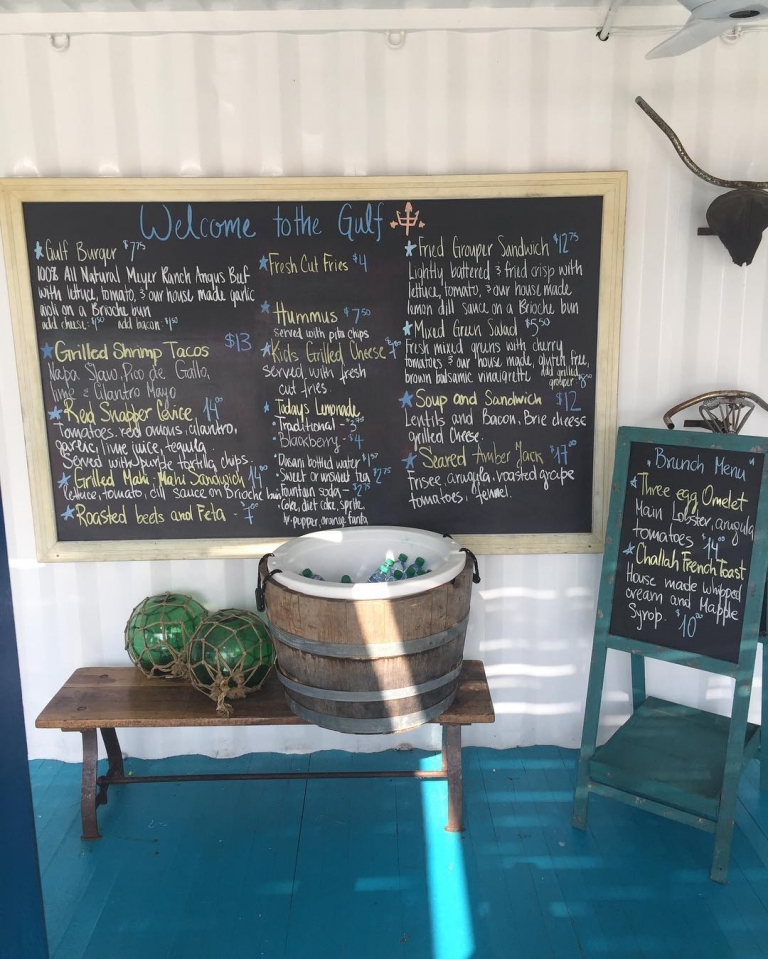 Welcome to the Gulf
Gulf Burger $7.75
100% All Natural Meyer Ranch Angus Beef
with lettuce, tomato, & our house made garlic
aioli on a Brioche bun
add cheese: $1.50 add bacon: $1.50
Grilled Shrimp Tacos $13
Napa Slaw, Pico de Gallo,
Lime & Cilantro Mayo
Red Snapper Cevice 14
Tomatoes, red onions, cilantro,
garlic, lime juice, tequila.
Served with purple tortilla chips.
Grilled Mahi Mahi Sandwich 14
lettuce, tomato, dill sauce on Brioche bun
Roasted beets and Feta - 7
Fresh Cut Fries $4
Hummus $7.50
served with pita chips
Kids Grilled Cheese
served with fresh
cut fries
Todays Lemonade
Traditional - $
Blackberry - $4
Dasani bottled water $
Sweet or unsweet tea $2.75
Fountain soda - $2.75
Coke, diet coke, sprite,
dr. pepper, orange fanta
Fried Grouper Sandwich $12.75
Lightly battered & fried crisp with
lettuce, tomato, & our house made
lemon dill sauce on a Brioche bun
Mixed Green Salad $5.50
Fresh mixed greens with cherry
tomatoes & our house made, gluten free,
brown balsamic vinaigrette add grilled
grouper $8.00
Soup and Sandwich $12
Lentils and Bacon, Brie cheese
grilled Cheese.
Seared Amber Jack $17.00
Frisee, arugula, roasted grape
tomatoes, fennel.
Brunch Menu
Three egg Omelet
Main Lobster, arugula
tomatoes $14.00
Challah French Toast
House made whipped
cream and Mapple
Syrop. $10.00